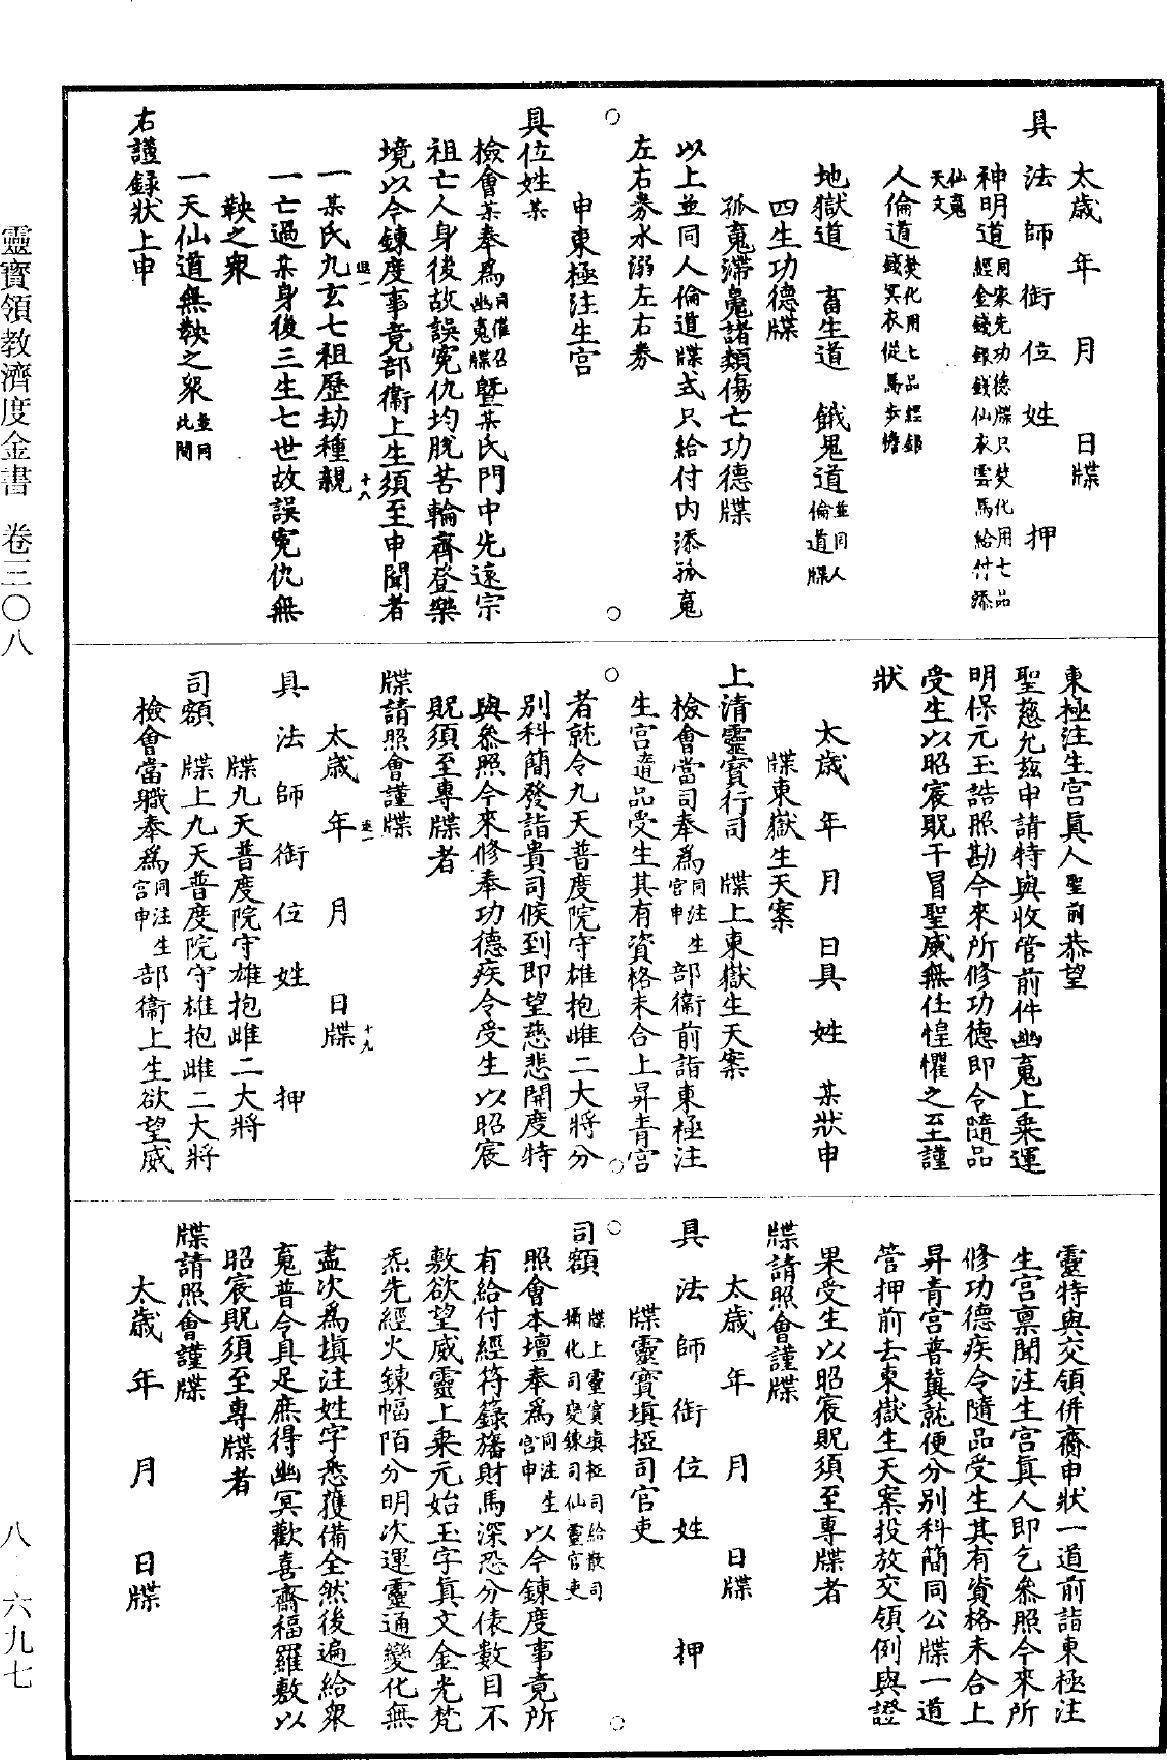 太歲　年　月　日牒
具法師銜位姓　押
神明道同宋先功德牒只焚化用七品經金錢銀錢仙衣雲馬給付添仙䰟天文
人倫道焚化用上品經銀錢冥衣從馬步擔
地獄道　畜生道　餓鬼道並同人倫道牒
四生功德牒
孤䰟滯鬼諸類傷亡功德牒
以上並同人倫道牒式只給付內添孤䰟
左右券水溺左右券
申東極注生宮
具位姓某
檢會某奉爲同催召幽䰟牒曁某氏門中先遠宗
祖亡人身後故誤冤仇均脫苦輪齊登樂
境以今鍊度事竟部衞上生須至申聞者
一某氏九玄七祖歷劫種親
一亡過某身後三生七世故誤冤仇無
鞅之衆
一天仙道無鞅之衆並同此間
右謹錄狀上申
東極注生宮眞人聖前恭望
聖慈允兹申請特與收管前件幽䰟上乗運
明保元玉誥照勘今來所修功德即令隨品
受生以昭宸貺干冒聖威無任惶懼之至謹
狀
太歲　年　月　日具姓　某狀申
牒東嶽生天案
上清靈寶行司　牒上東嶽生天案
檢會當司奉爲同注生宮申部衞前詣東極注
生宮遣品受生其有資格未合上昇青宮
者就令九天普度院守雄抱雌二大將分
別科簡發詣貴司候到即望慈悲開度特
與參照今來修奉功德疾令受生以昭宸
貺須至專牒者
牒請照會謹牒
太歲　年　月　日牒
具法師銜位姓　押
牒九天普度院守雄抱雌二大將
司額　牒上九天普度院守雄抱雌二大將
檢會當職奉爲同注生宮申部衞上生欲望威
靈特與交領倂齎申狀一道前詣東極注
生宮禀聞注生宮眞人即乞參照今來所
修功德疾令隨品受生其有資格未合上
昇青宮普冀就便分別科簡同公牒一道
管押前去東嶽生天案投放交領例與證
果受生以昭宸貺須至專牒者
牒請照會謹牒
太歲　年　月　日牒
具法師銜位姓　押
牒靈寶塡掗司官吏
司額　牒上靈寶塡掗司給散司攝化司變鍊司仙靈官吏
照會本壇奉爲同注生宮申以今鍊度事竟所
有給付經符籙旛財馬深恐分俵數目不
敷欲望威靈上乗元始玉字眞文金光梵
炁先經火鍊幅陌分明次運靈通變化無
盡次爲塡注姓字悉獲備全然後遍給衆
䰟普令具足庶得幽冥歡喜齋福羅敷以
昭宸貺須至專牒者
牒請照會謹牒
太歲　年　月　日牒
靈寶領教濟度金書　卷三〇八
八－六九七